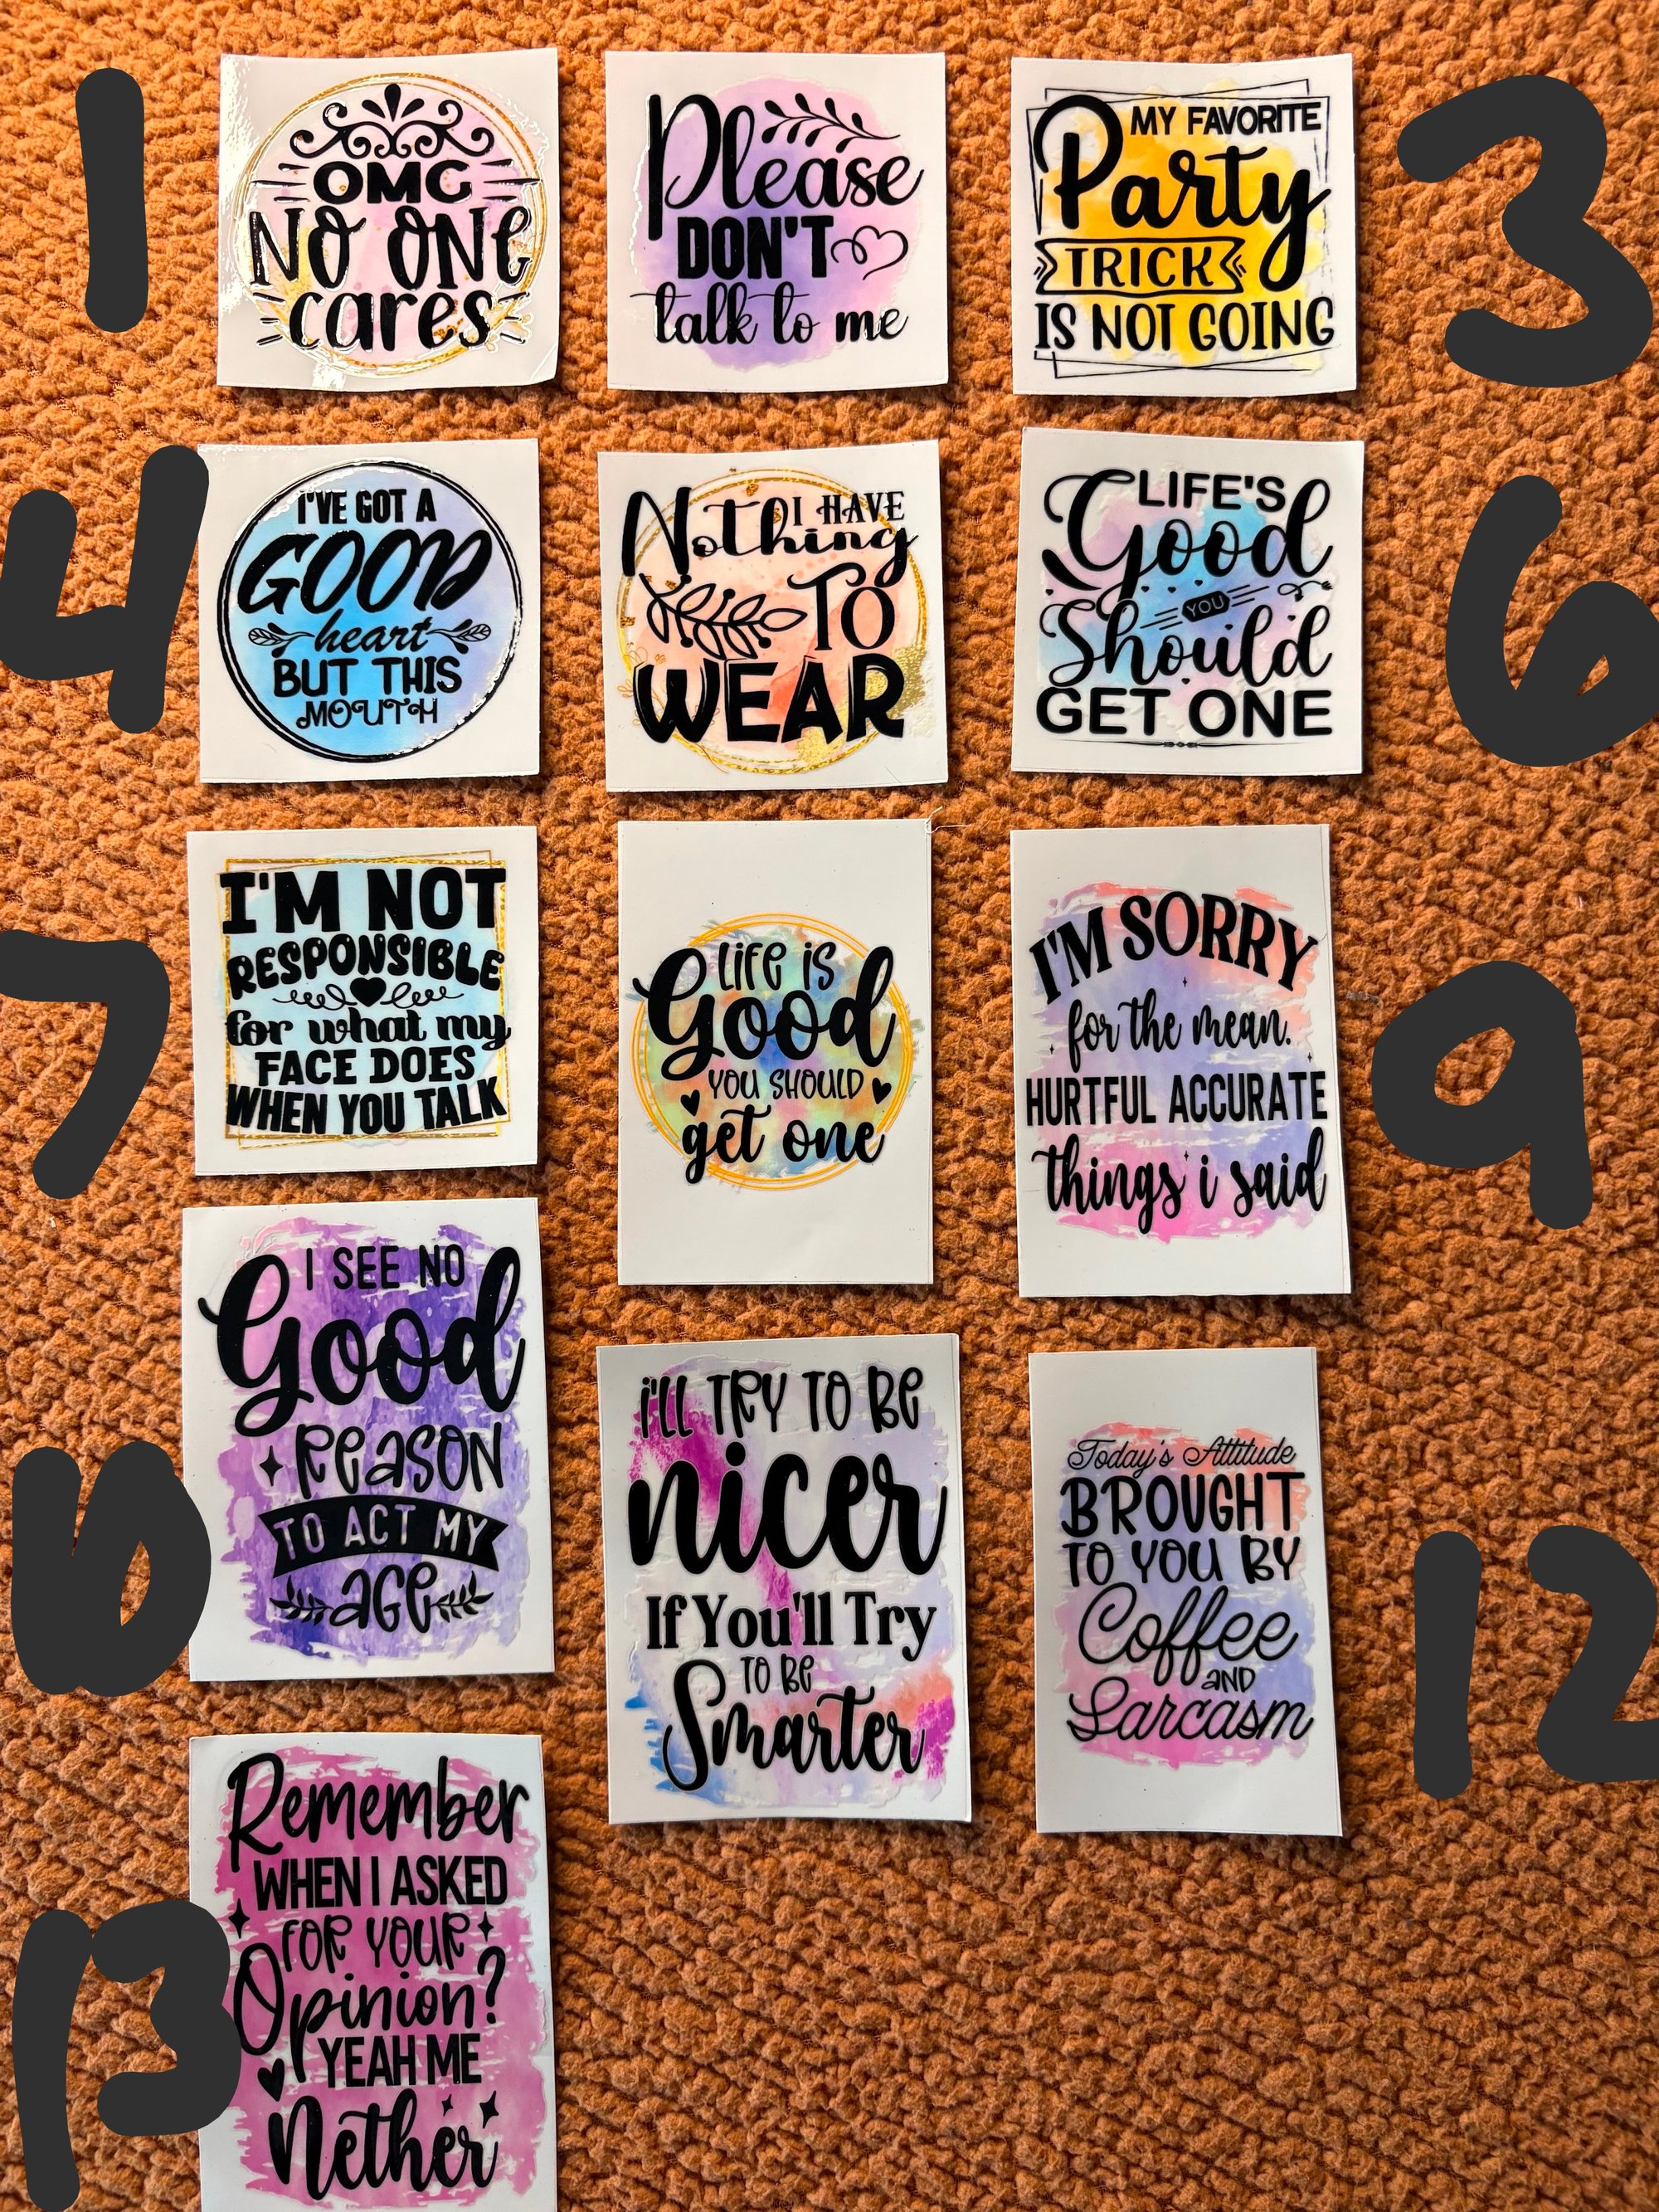 1
OMG
NO ONE
cares
Please
DON'T
talk to me
3
MY FAVORITE
Party
TRICK
IS NOT GOING
4
I'VE GOT A
GOOD
heart
BUT THIS
MOUTH
I HAVE
Nothing
TO
WEAR
6
LIFE'S
Good
YOU
Should
GET ONE
7
I'M NOT
RESPONSIBLE
for what my
FACE DOES
WHEN YOU TALK
LIFE IS
Good
YOU SHOULD
get one
9
I'M SORRY
for the mean.
HURTFUL ACCURATE
things i said
10
I SEE NO
Good
REASON
TO ACT MY
AGE
i'LL TRY TO BE
nicer
If You'll Try
TO BE
Smarter
12
Today's Attitude
BROUGHT
TO YOU BY
Coffee
AND
Sarcasm
13
Remember
WHEN I ASKED
FOR YOUR
Opinion?
YEAH ME
Nether